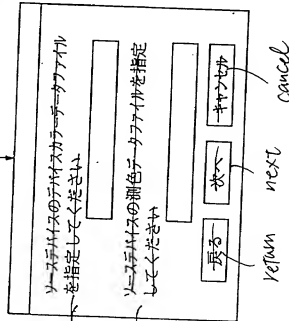 ソースデバイスのデバイスカラーデータファイル
を指定してください
ソースデバイスの測色データファイルを指定
してください
戻る
次へ
キャンセル
return
next
cancel